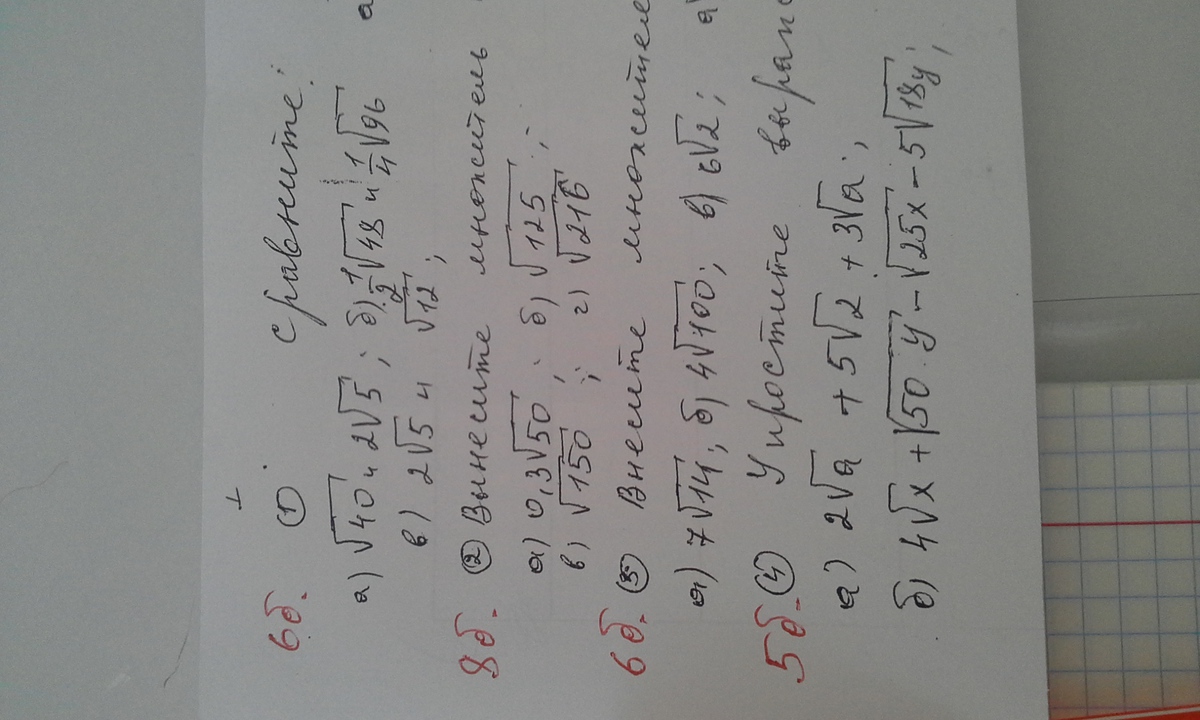 I
6б. ① Сравните:
а) √40 и 2√5; б) 1/2√48 и 1/4√96
в) 2√5 и √12;
8б. ② Вынесите множитель
а) 0,3√50; б) √125;
в) √150; г) √216
6б. ③ Внесите
а) 7√14; б) 4√100; в) 6√2;
5б. ④ Упростите
а) 2√a + 5√2 + 3√a;
б) 4√x + √50·y - √25x - 5√18y;